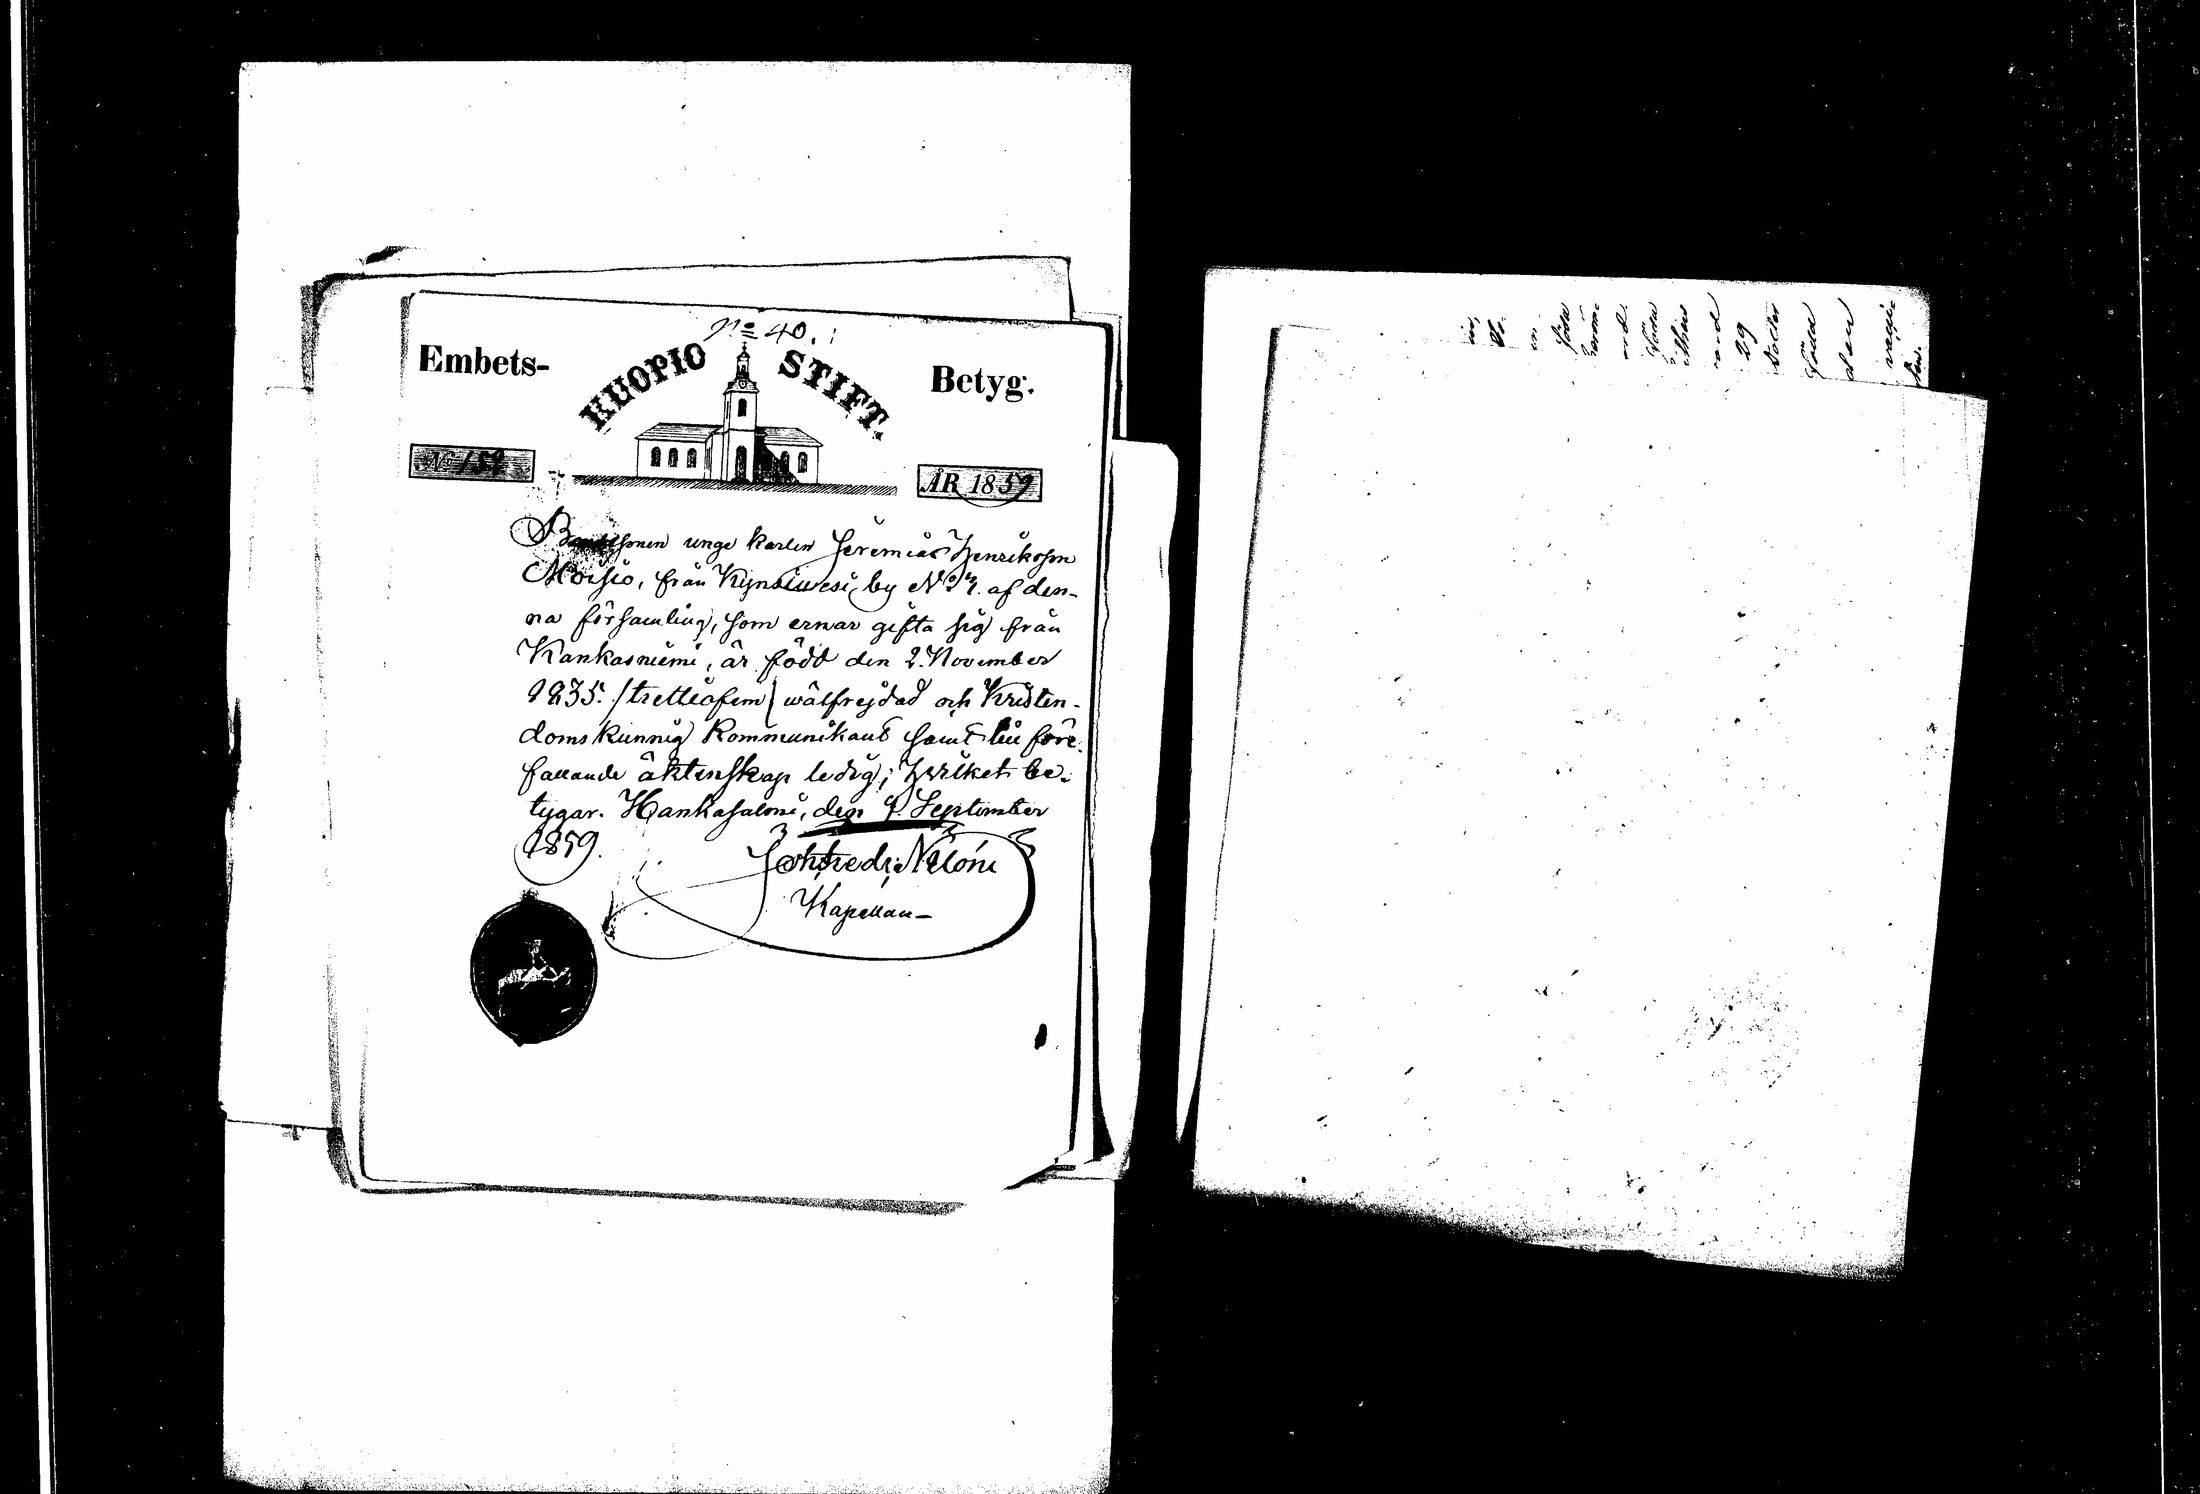 No 40.
Embets-
KUOPIO STIFT.
Betyg.
No 159
ÅR 1859
unge karlen Jeremias Henriksson
Moisio, från Kynsiwesi by No af den-
na församling, som ernar gifta sig från
Kankasniemi, är född den 2. November
1835. /trettiofem/ wälfrejdad och Kristen-
doms kunnig Kommunikant samt till före-
fallande äktenskap ledig; hwilket be-
tygar. Hankasalmi, den September
1859.
Kapellan
29